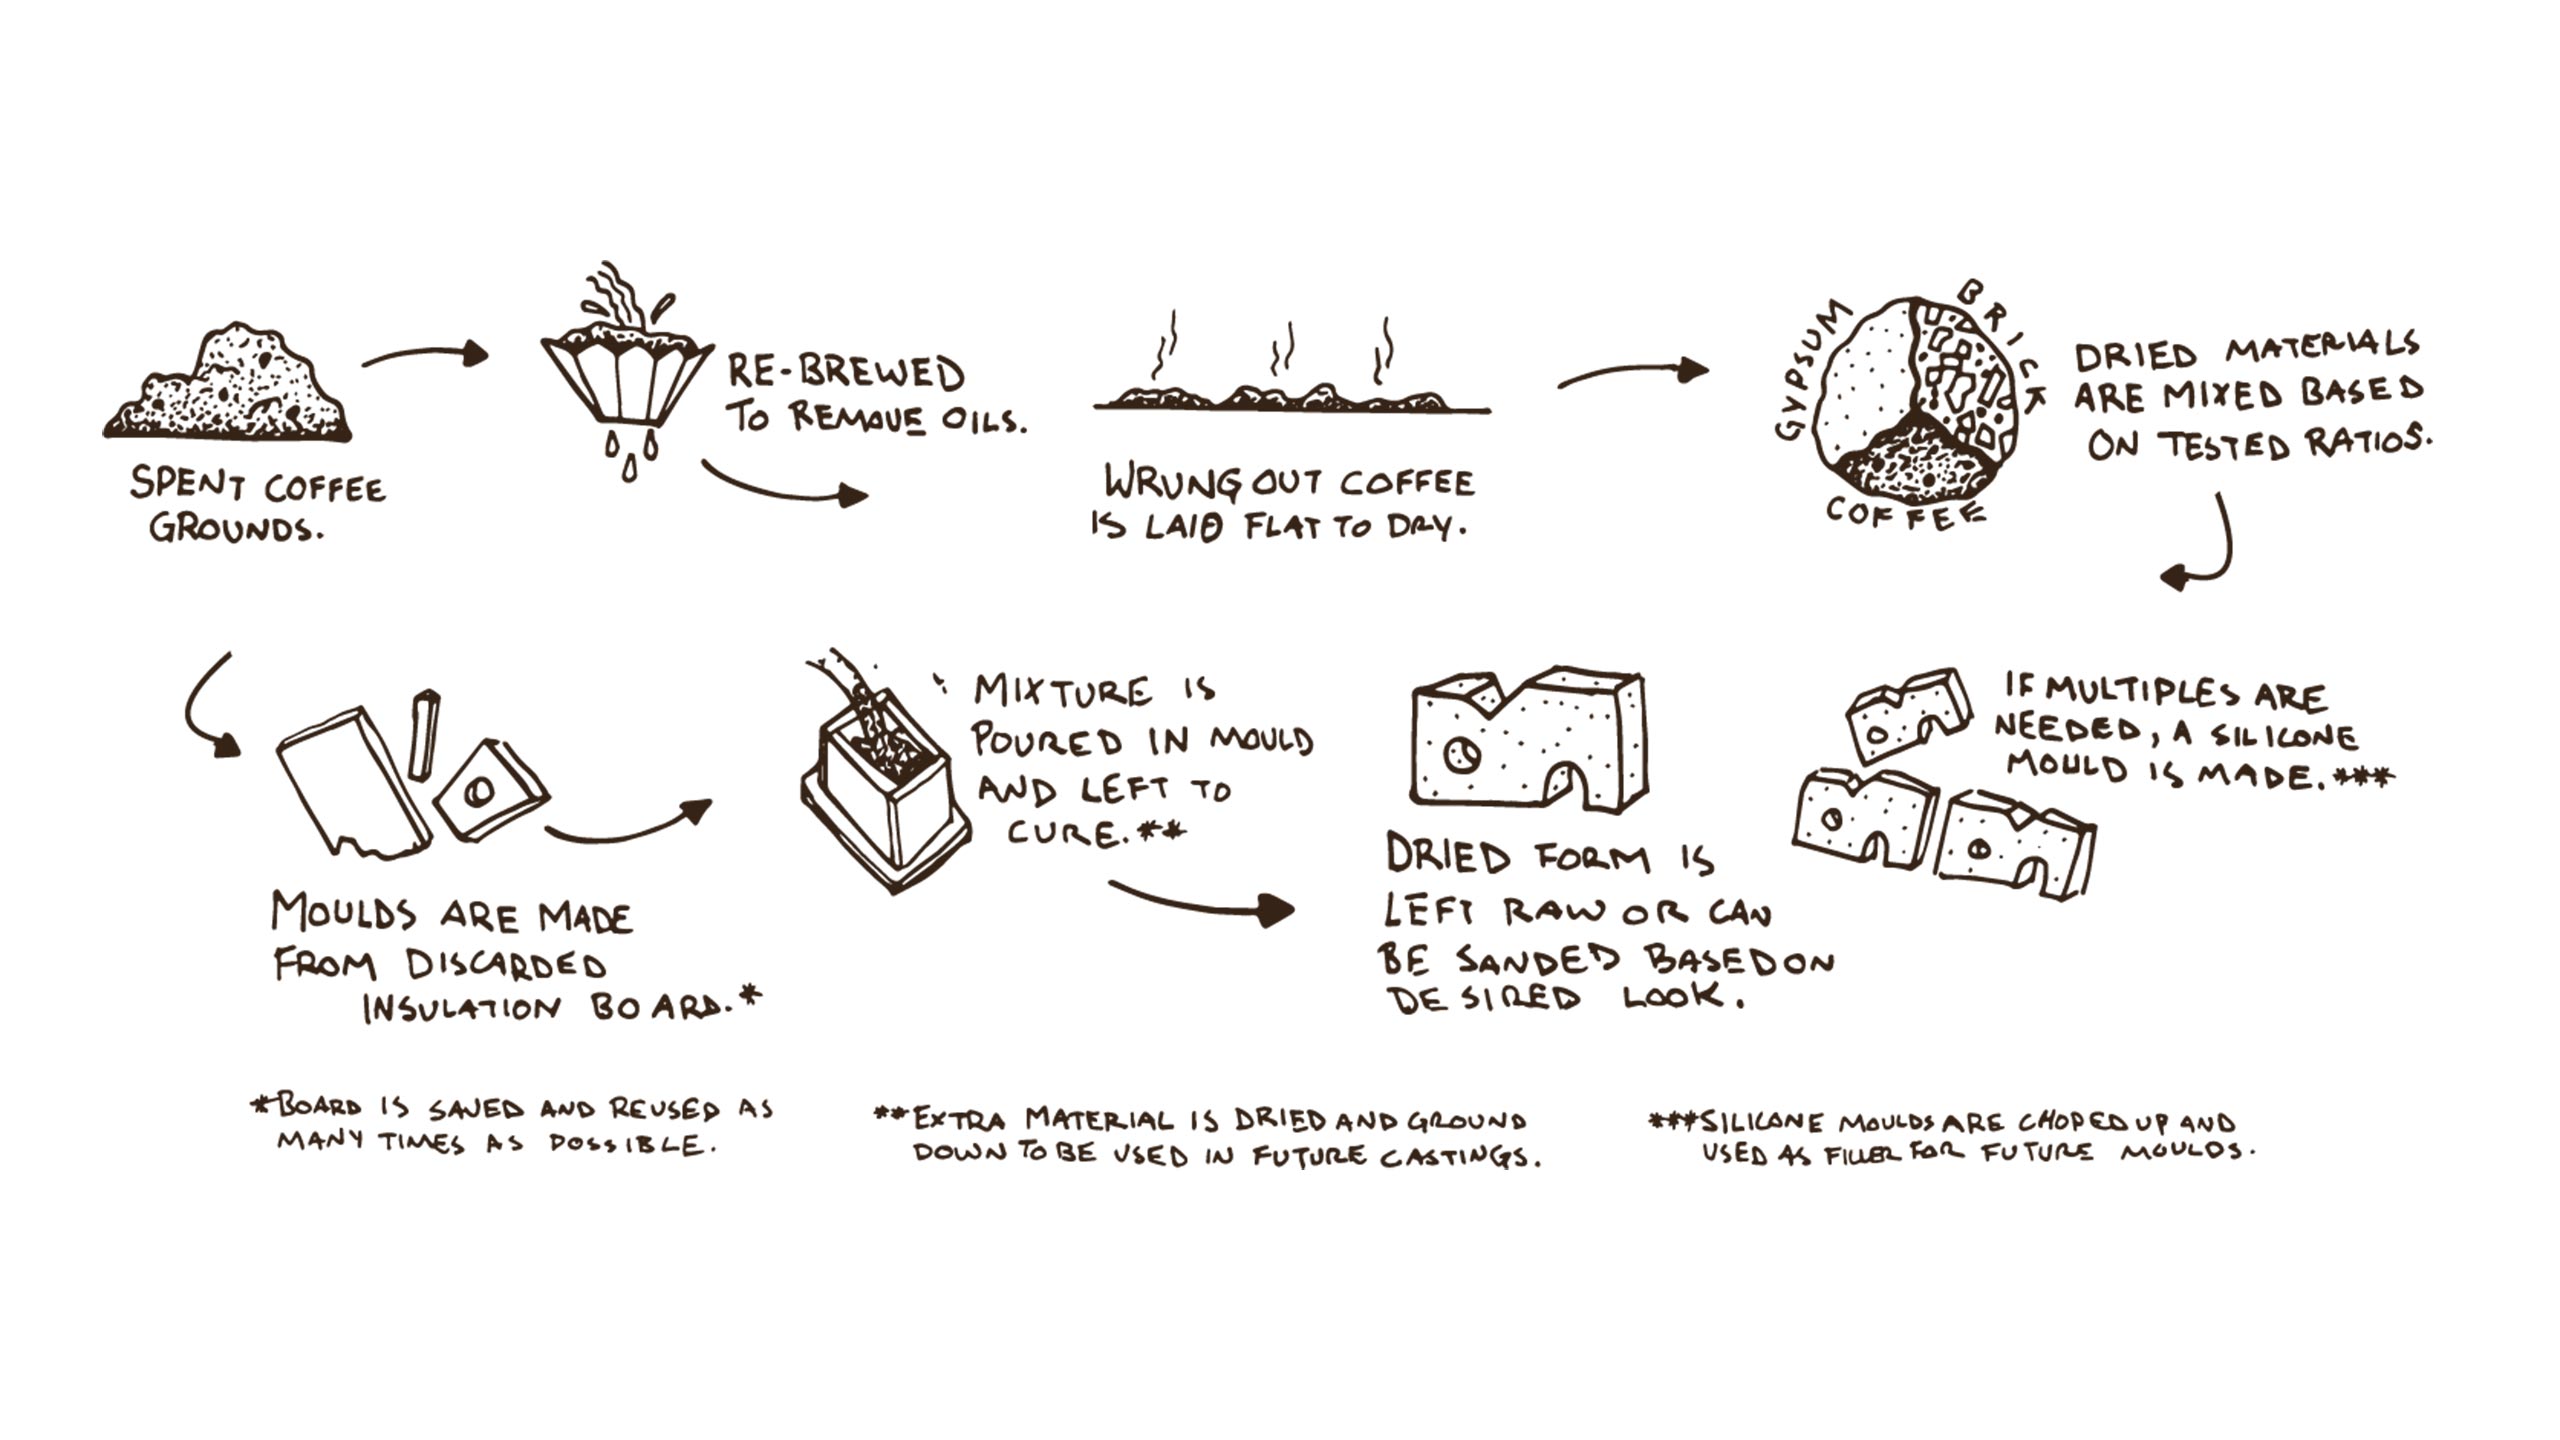 SPENT COFFEE
GROUNDS.
RE-BREWED
TO REMOVE OILS.
WRUNG OUT COFFEE
IS LAID FLAT TO DRY.
GYPSUM
BRICK
COFFEE
DRIED MATERIALS
ARE MIXED BASED
ON TESTED RATIOS.
MOULDS ARE MADE
FROM DISCARDED
INSULATION BOARD.*
MIXTURE IS
POURED IN MOULD
AND LEFT TO
CURE.**
DRIED FORM IS
LEFT RAW OR CAN
BE SANDED BASED ON
DESIRED LOOK.
IF MULTIPLES ARE
NEEDED, A SILICONE
MOULD IS MADE.***
*BOARD IS SAVED AND REUSED AS
MANY TIMES AS POSSIBLE.
**EXTRA MATERIAL IS DRIED AND GROUND
DOWN TO BE USED IN FUTURE CASTINGS.
***SILICONE MOULDS ARE CHOPED UP AND
USED AS FILLER FOR FUTURE MOULDS.